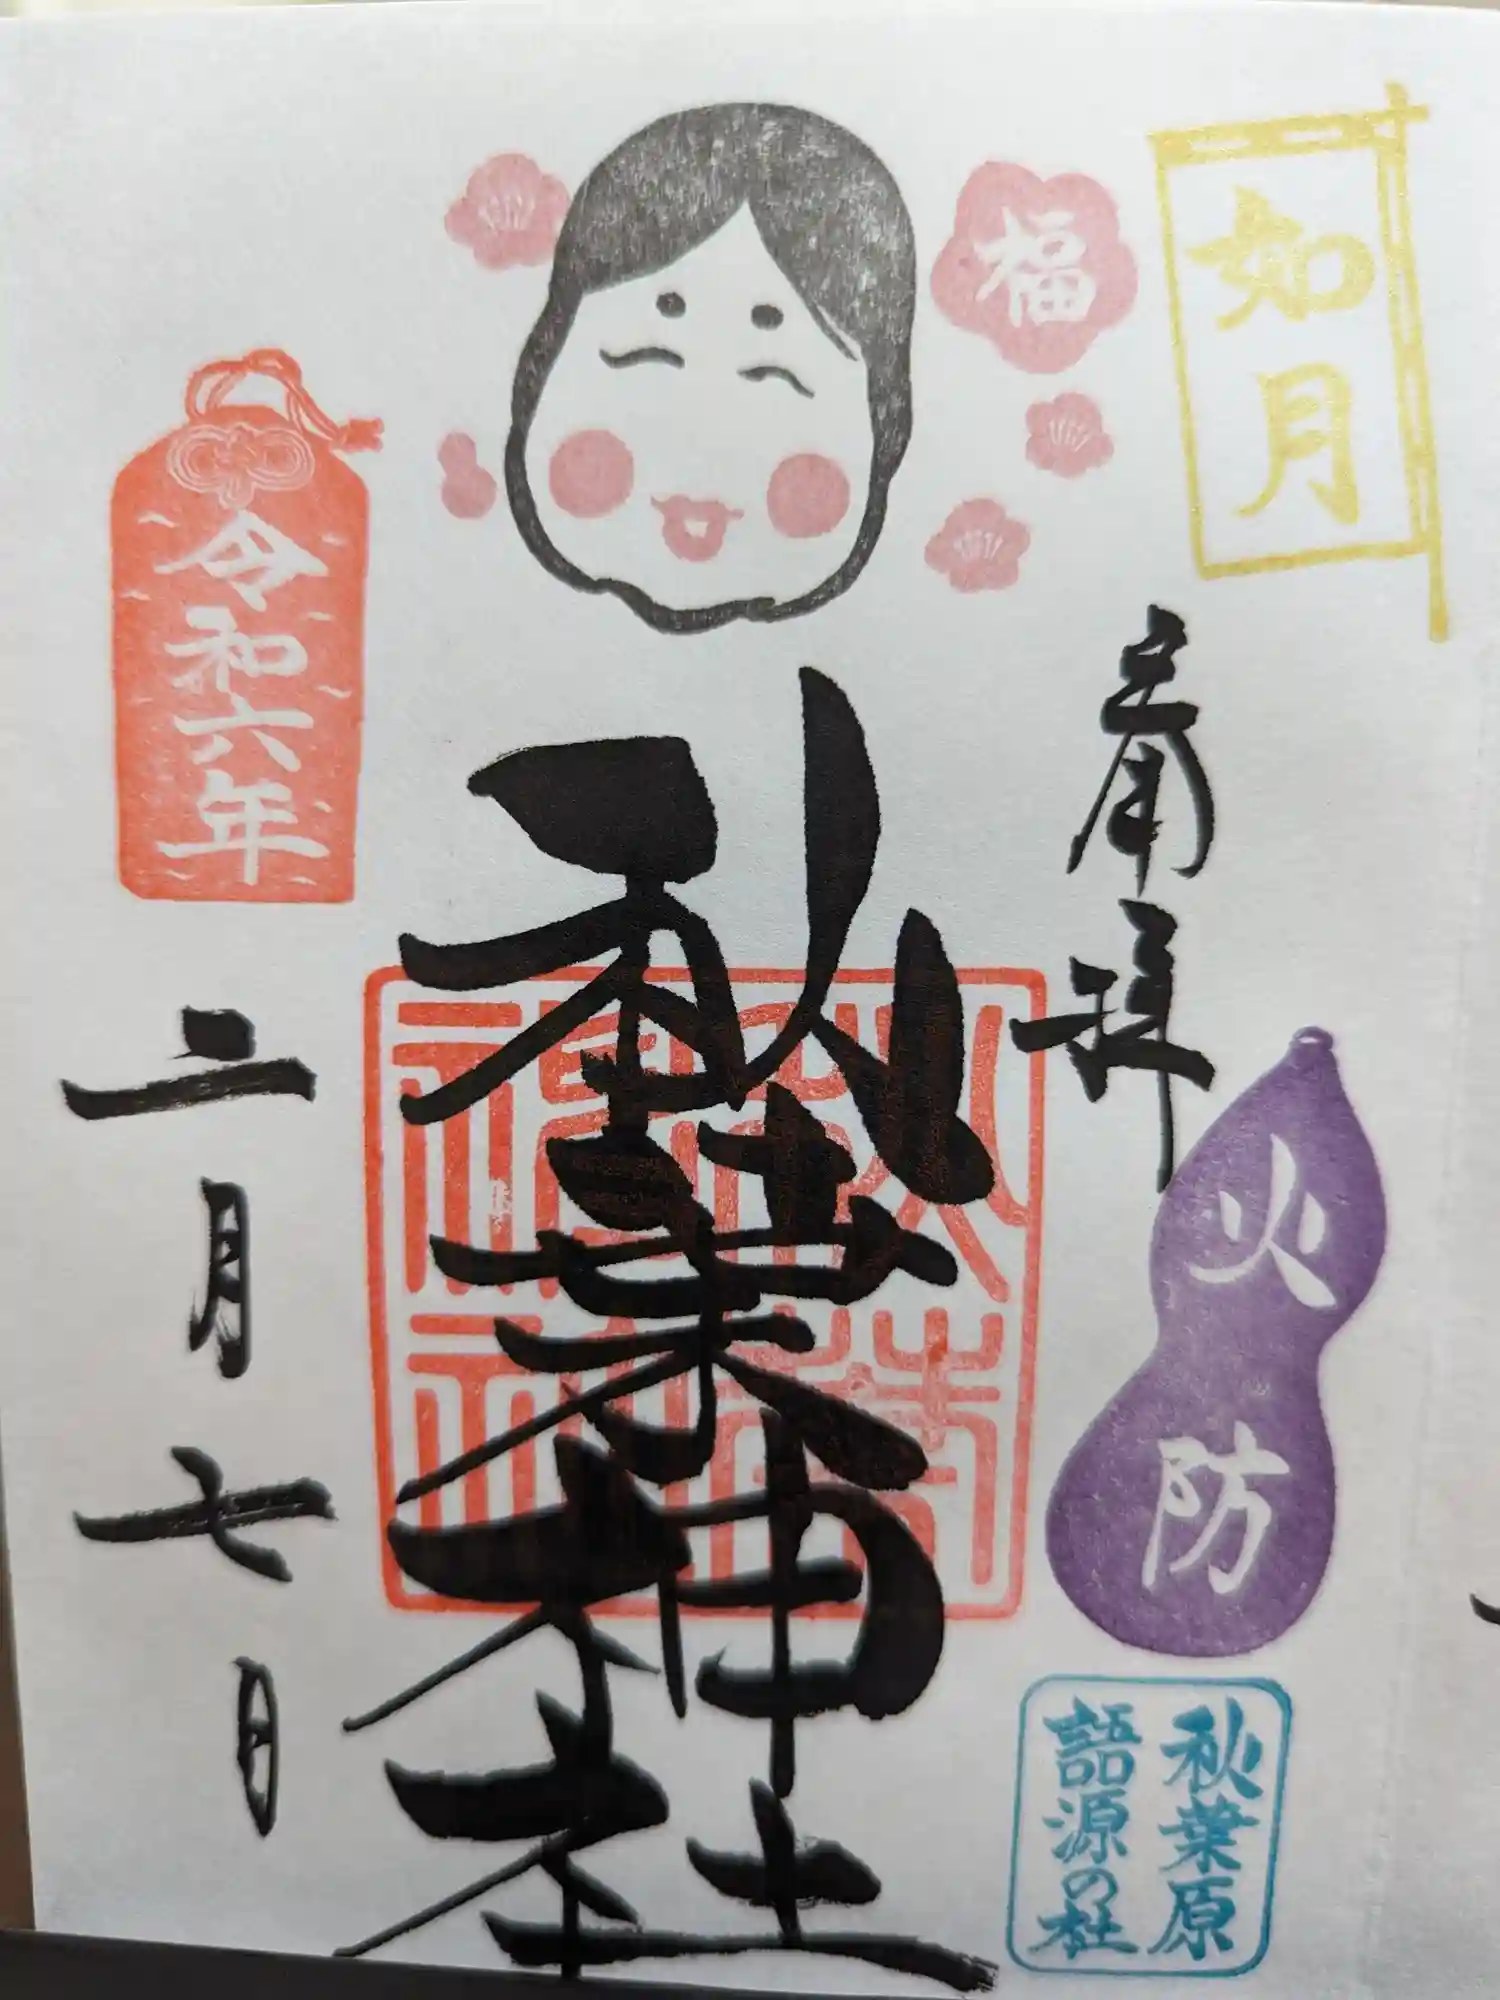 如月
福
斎拝
火防
秋葉原
語源の社
秋葉神社
令和六年
二月七日